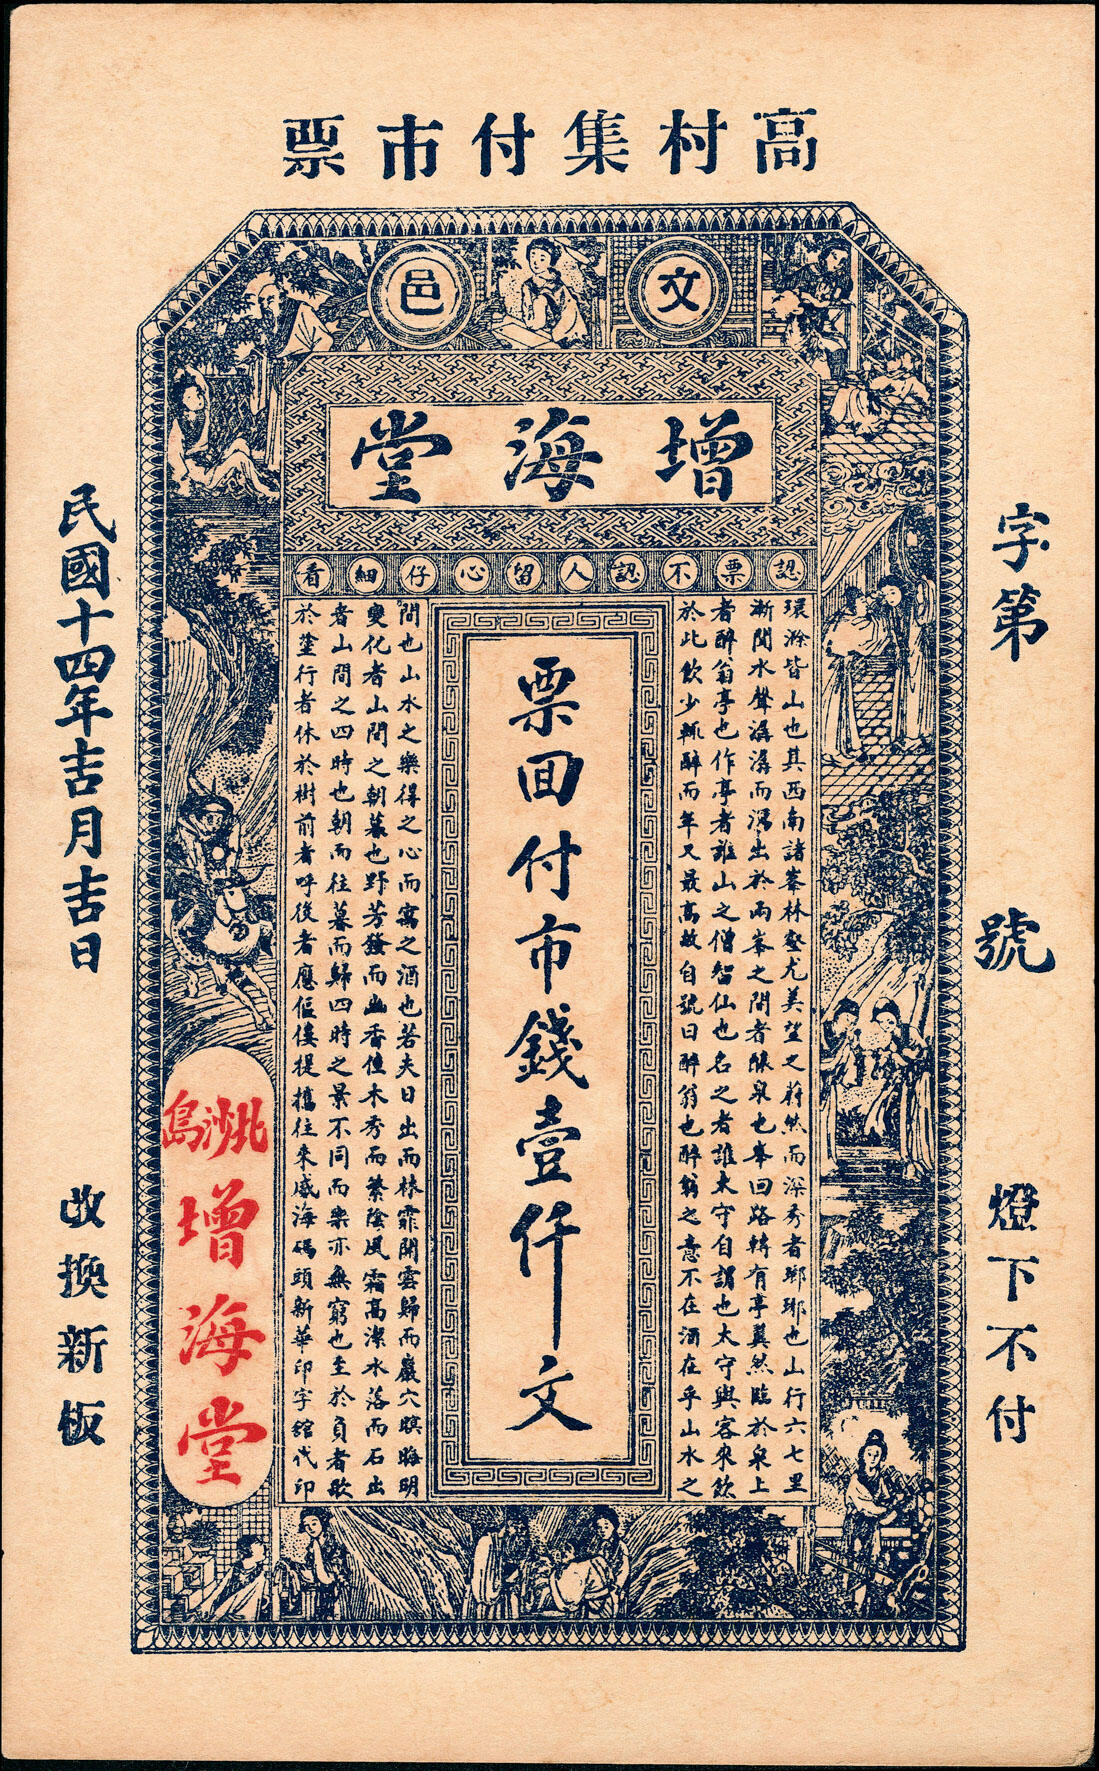 高村集付市票
文邑
增海堂
認票不認人留心仔細看
環滁皆山也其西南諸峯林壑尤美望之蔚然而深秀者瑯琊也山行六七里
漸聞水聲潺潺而瀉出於兩峯之間者釀泉也峯回路轉有亭翼然臨於泉上
者醉翁亭也作亭者誰山之僧智仙也名之者誰太守自謂也太守與客來飲
於此飲少輒醉而年又最高故自號曰醉翁也醉翁之意不在酒在乎山水之
票回付市錢壹仟文
間也山水之樂得之心而寓之酒也若夫日出而林霏開雲歸而巖穴暝晦明
變化者山間之朝暮也野芳發而幽香佳木秀而繁陰風霜高潔水落而石出
者山間之四時也朝而往暮而歸四時之景不同而樂亦無窮也至於負者歌
於塗行者休於樹前者呼後者應傴僂提攜往來威海碼頭新華印字館代印
字第
號
燈下不付
民國十四年吉月吉日
改換新板
北沙島
增海堂